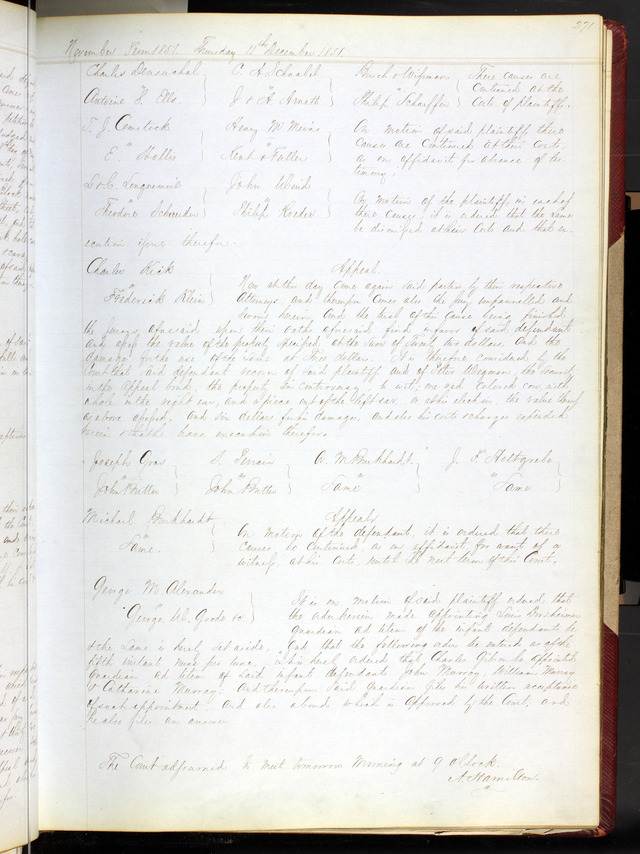 271
November Term 1851. Thursday 11th December 1851.
Charles C. A. Schnabel These causes are
continued at the
Antoine F. Ells. J. & H. Arnott Philip Schaeffer Costs of plaintiff.
T. J. Comstock Henry M. On motion of said plaintiff these
causes are continued at their costs,
E. Holler Kent & Fuller as on affidavit for absence of tes-
timony.
L & C. John
On motion of the plaintiffs in each of
Theodore Schroeder Philip Roeder these causes, it is ordered that the same
be dismissed at their costs and that ex-
ecution issue therefor.
Charles Keik Appeal.
Now at this day come again said parties by their respective
Frederick Klein Attorneys, and thereupon comes also the jury, impannelled and
sworn herein. And the trial of this cause being finished,
the jurors, aforesaid upon their oaths aforesaid find in favor of said defendant
and assess the value of the property specified, at the sum of twenty two dollars. And the
damages for the use of the same at three dollars. It is therefore considered by the
Court that said defendant recover of said plaintiff and of Peter Wegman, the security
in his appeal bond, the property in controversy, to wit; one red colored cow with
a hole in the right ear, and a piece out of the left ear, or at his election, the value thereof
as above assessed, and six dollars for his damages, and also his costs & charges expended
herein & that he have execution therefor.
Joseph Gras S. A. M. Burkhardt J. F. Holtgrebe
John Butter John Butter Same Same
Michael Burkhardt Appeals
On motion of the defendant, it is ordered that these
Same. causes be continued, as on affidavit, for want of a
witness, at his costs, until the next term of this Court.
George M. Alexander
It is on motion of said plaintiff ordered that
George W. the order herein made appointing
guardian ad litem of the infant defendants be
& the same is hereby set aside, And that the following order be entered as of the
fifth instant nunc pro tunc. It is hereby ordered that Charles be appointed
Guardian ad litem of said infant defendants John Murray, William Murray
& Catharine Murray. And thereupon said guardian files his written acceptance
of such appointment, and also a bond which is approved by the Court, and
he also files an answer
The Court adjourned to meet tomorrow Morning at 9 o'Clock.
A. Hamilton.